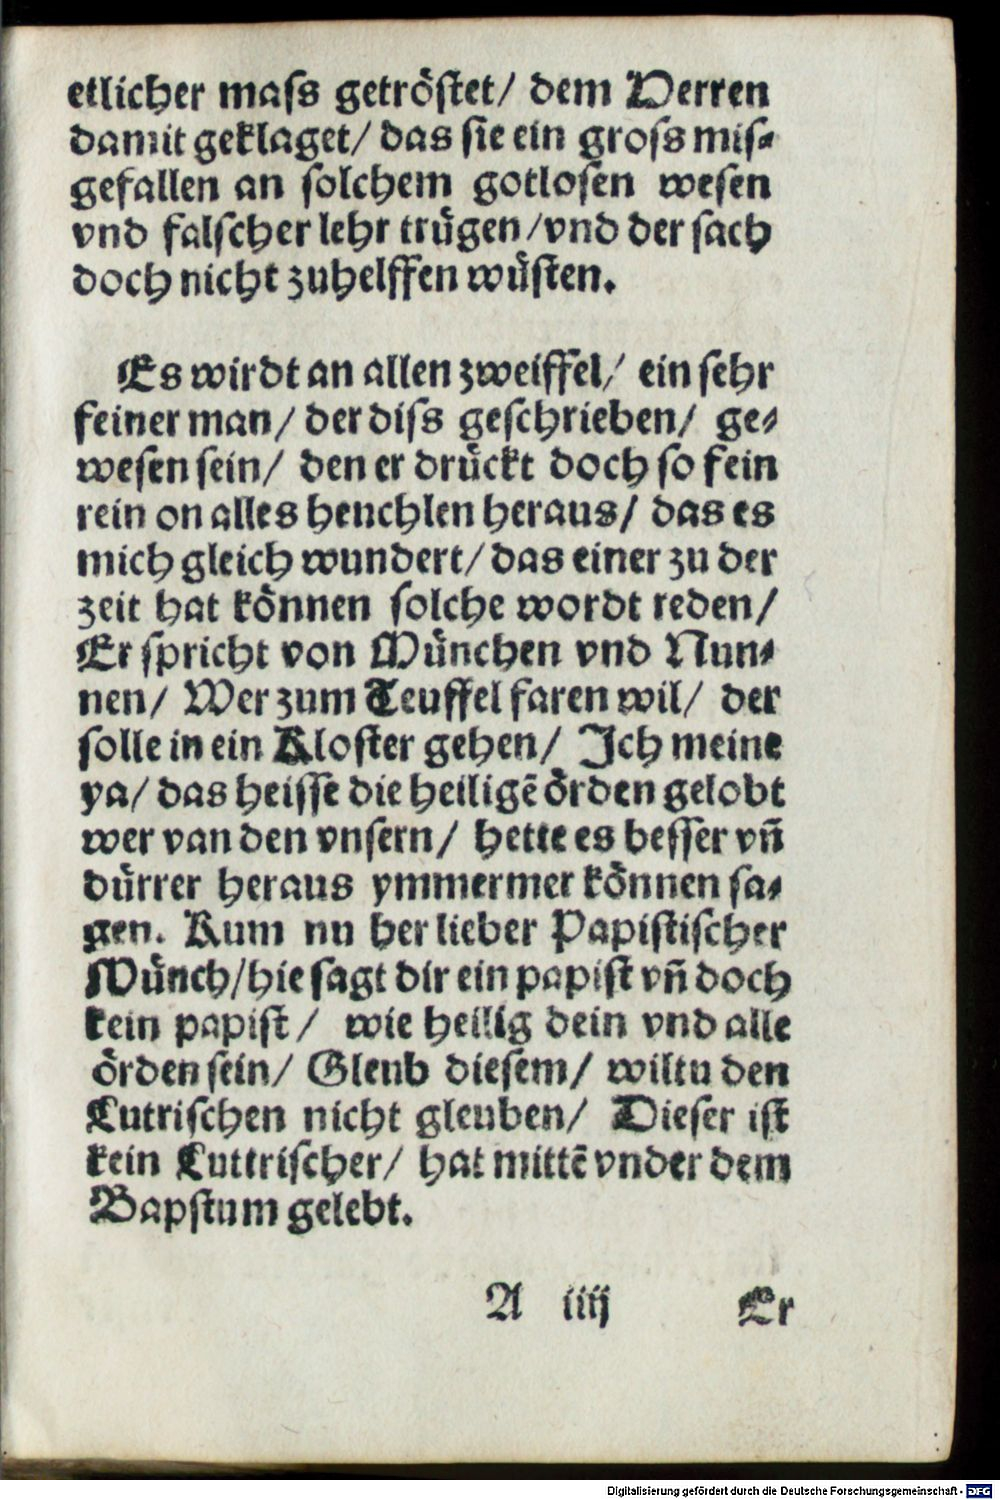 etlicher mass getröstet/ dem Herren
damit geklaget/ das sie ein gross mis⸗
gefallen an solchem gotlosen wesen
vnd falscher lehr trügen/vnd der sach
doch nicht zuhelffen wüsten.
Es wirdt an allen zweiffel/ ein sehr
feiner man/ der diss geschrieben/ ge⸗
wesen sein/ den er drückt doch so fein
rein on alles heuchlen heraus/ das es
mich gleich wundert/ das einer zu der
zeit hat können solche wordt reden/
Er spricht von München vnd Nun⸗
nen/ Wer zum Teuffel faren wil/ der
solle in ein Kloster gehen/ Ich meine
ya/ das heisse die heiligē örden gelobt
wer van den vnsern/ hette es besser vn̄
dürrer heraus ymmermer können sa⸗
gen. Kum nu her lieber Papistischer
Münch/hie sagt dir ein papist vn̄ doch
kein papist/ wie heilig dein vnd alle
örden sein/ Gleub diesem/ wiltu den
Lutrischen nicht gleuben/ Dieser ist
kein Luttrischer/ hat mittē vnder dem
Bapstum gelebt.
A iiij Er
Digitalisierung gefördert durch die Deutsche Forschungsgemeinschaft - DFG